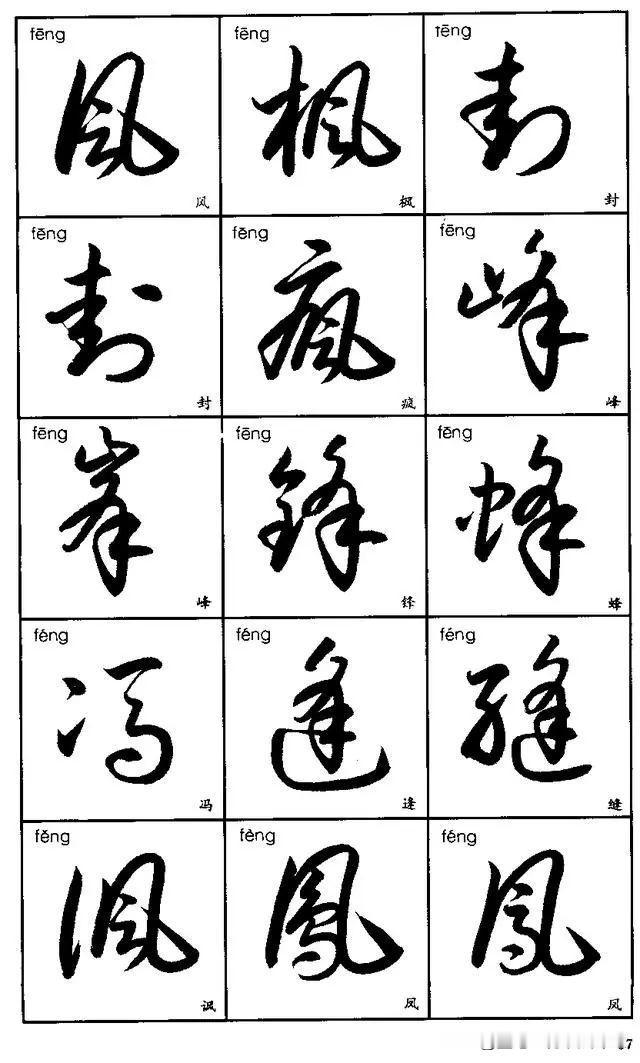 fēng fēng fēng
风 枫 封
风 枫 封
fēng fēng fēng
封 疯 峰
封 疯 峰
fēng fēng fēng
峯 鋒 蜂
峰 锋 蜂
féng féng féng
冯 逢 缝
冯 逢 缝
fěng fèng féng
讽 鳳 凤
讽 凤 凤
7